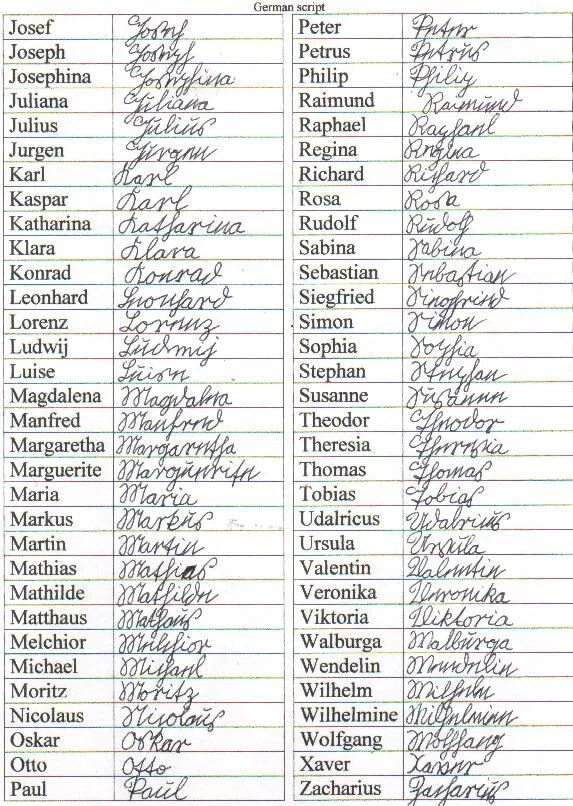 German script
Josef Josef
Joseph Joseph
Josephina Josephina
Juliana Juliana
Julius Julius
Jurgen Jürgen
Karl Karl
Kaspar Karl
Katharina Katharina
Klara Klara
Konrad Konrad
Leonhard Leonhard
Lorenz Lorenz
Ludwij Ludwij
Luise Luise
Magdalena Magdalena
Manfred Manfred
Margaretha Margaretha
Marguerite Marguerite
Maria Maria
Markus Markus
Martin Martin
Mathias Mathias
Mathilde Mathilde
Matthaus Mathaus
Melchior Melchior
Michael Michael
Moritz Moritz
Nicolaus Nicolaus
Oskar Oskar
Otto Otto
Paul Paul
Peter Peter
Petrus Petrus
Philip Philip
Raimund Raimund
Raphael Raphael
Regina Regina
Richard Richard
Rosa Rosa
Rudolf Rudolf
Sabina Sabina
Sebastian Sebastian
Siegfried Siegfried
Simon Simon
Sophia Sophia
Stephan Stephan
Susanne Susanne
Theodor Theodor
Theresia Theresia
Thomas Thomas
Tobias Tobias
Udalricus Udalricus
Ursula Ursula
Valentin Valentin
Veronika Veronika
Viktoria Viktoria
Walburga Walburga
Wendelin Wendelin
Wilhelm Wilhelm
Wilhelmine Wilhelmine
Wolfgang Wolfgang
Xaver Xaver
Zacharius Zacharius